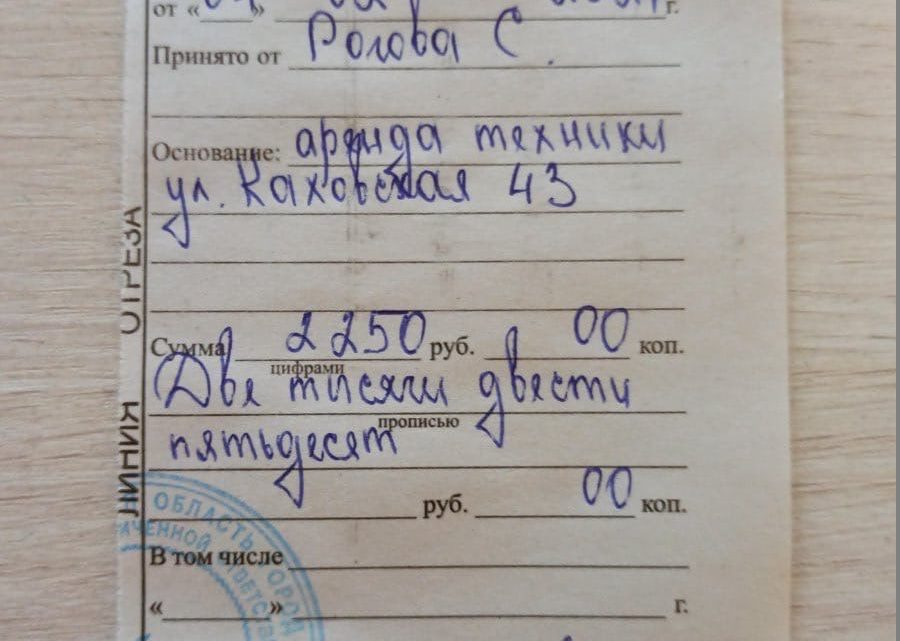 от « » г.
Принято от Рогова С.
Основание: аренда техники
ул. Каховская 43
Сумма 2250 руб. 00 коп.
цифрами
Две тысячи двести
прописью
пятьдесят
руб. 00 коп.
В том числе
« » г.
ЛИНИЯ ОТРЕЗА
ОБЛАСТЬ ГОРОД